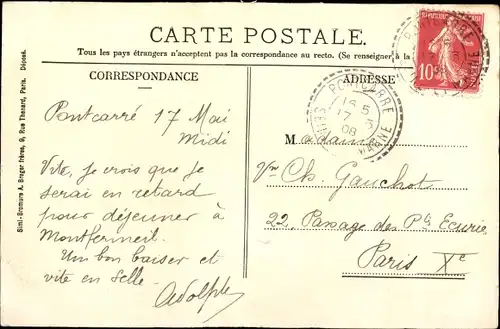 CARTE POSTALE.
Tous les pays étrangers n'acceptent pas la correspondance au recto. (Se renseigner à la
CORRESPONDANCE
Simi-Bromure A. Breger frères, 9, Rue Thénard, Paris. Déposé.
10
PONTCARRÉ
16 5
17 - 5
08
SEINE
MARNE
Pontcarré 17 Mai
Midi
Vite, je crois que je
serai en retard
pour déjeuner à
Montfermeil.
Un bon baiser et
vite en selle.
Adolphe
Madame
Vve Ch. Gauchot
22 Passage des Ptes Ecuries
Paris Xe